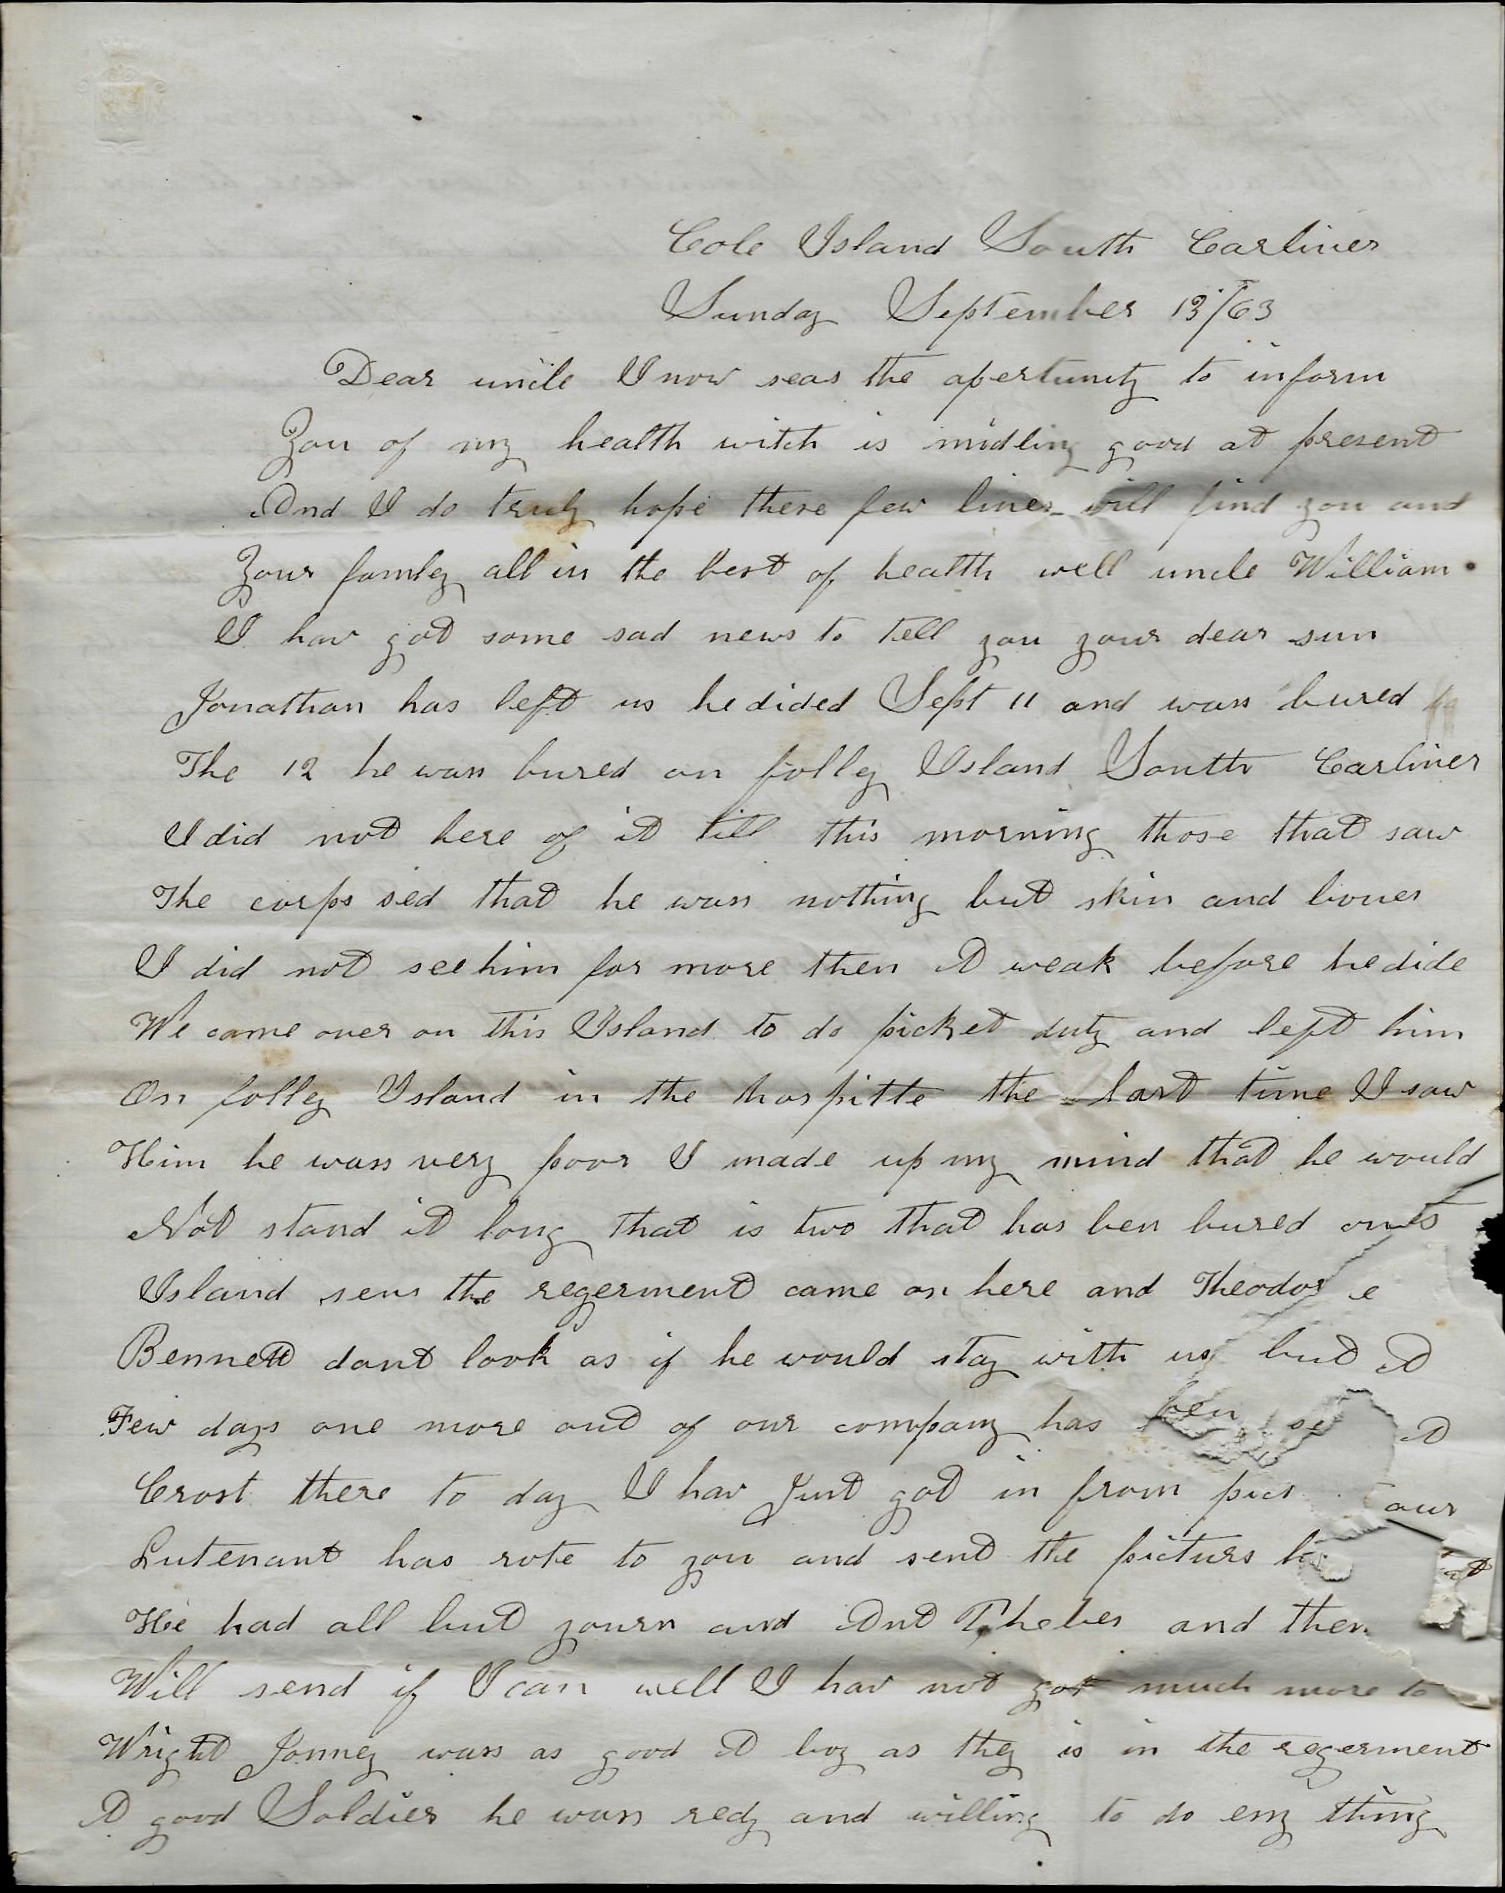 Cole Island South Carliner
Sunday September 13/63
Dear uncle I now seas the apertunity to inform
You of my health witch is midling good at present
And I do truly hope these few lines will find you and
Your famley all in the best of health well uncle William
I hav got some sad news to tell you your dear sun
Jonathan has left us he dided Sept 11 and wass bured
The 12 he wass bured on folley Island South Carliner
I did not here of it till this morning those that saw
The corps sed that he wass nothing but skin and bones
I did not see him for more then A weak before he dide
We came over on this Island to do picket duty and left him
On folley Island in the hospitte the last time I saw
Him he wass very poor I made up my mind that he would
Not stand it long that is two that has ben bured on
Island sens the regerment came on here and Theodore
Bennett dont look as if he would stay with us but A
Few days one more out of our company has ben
Crost there to day I hav Just got in from our
Lutenant has rote to you and send the picturs
He had all but yourn and Ant Phebes and
Will send if I can well I hav not got much more to
Wright Jonney wass as good A boy as they is in the regerment
A good Soldier he wass redy and willing to do eny thing